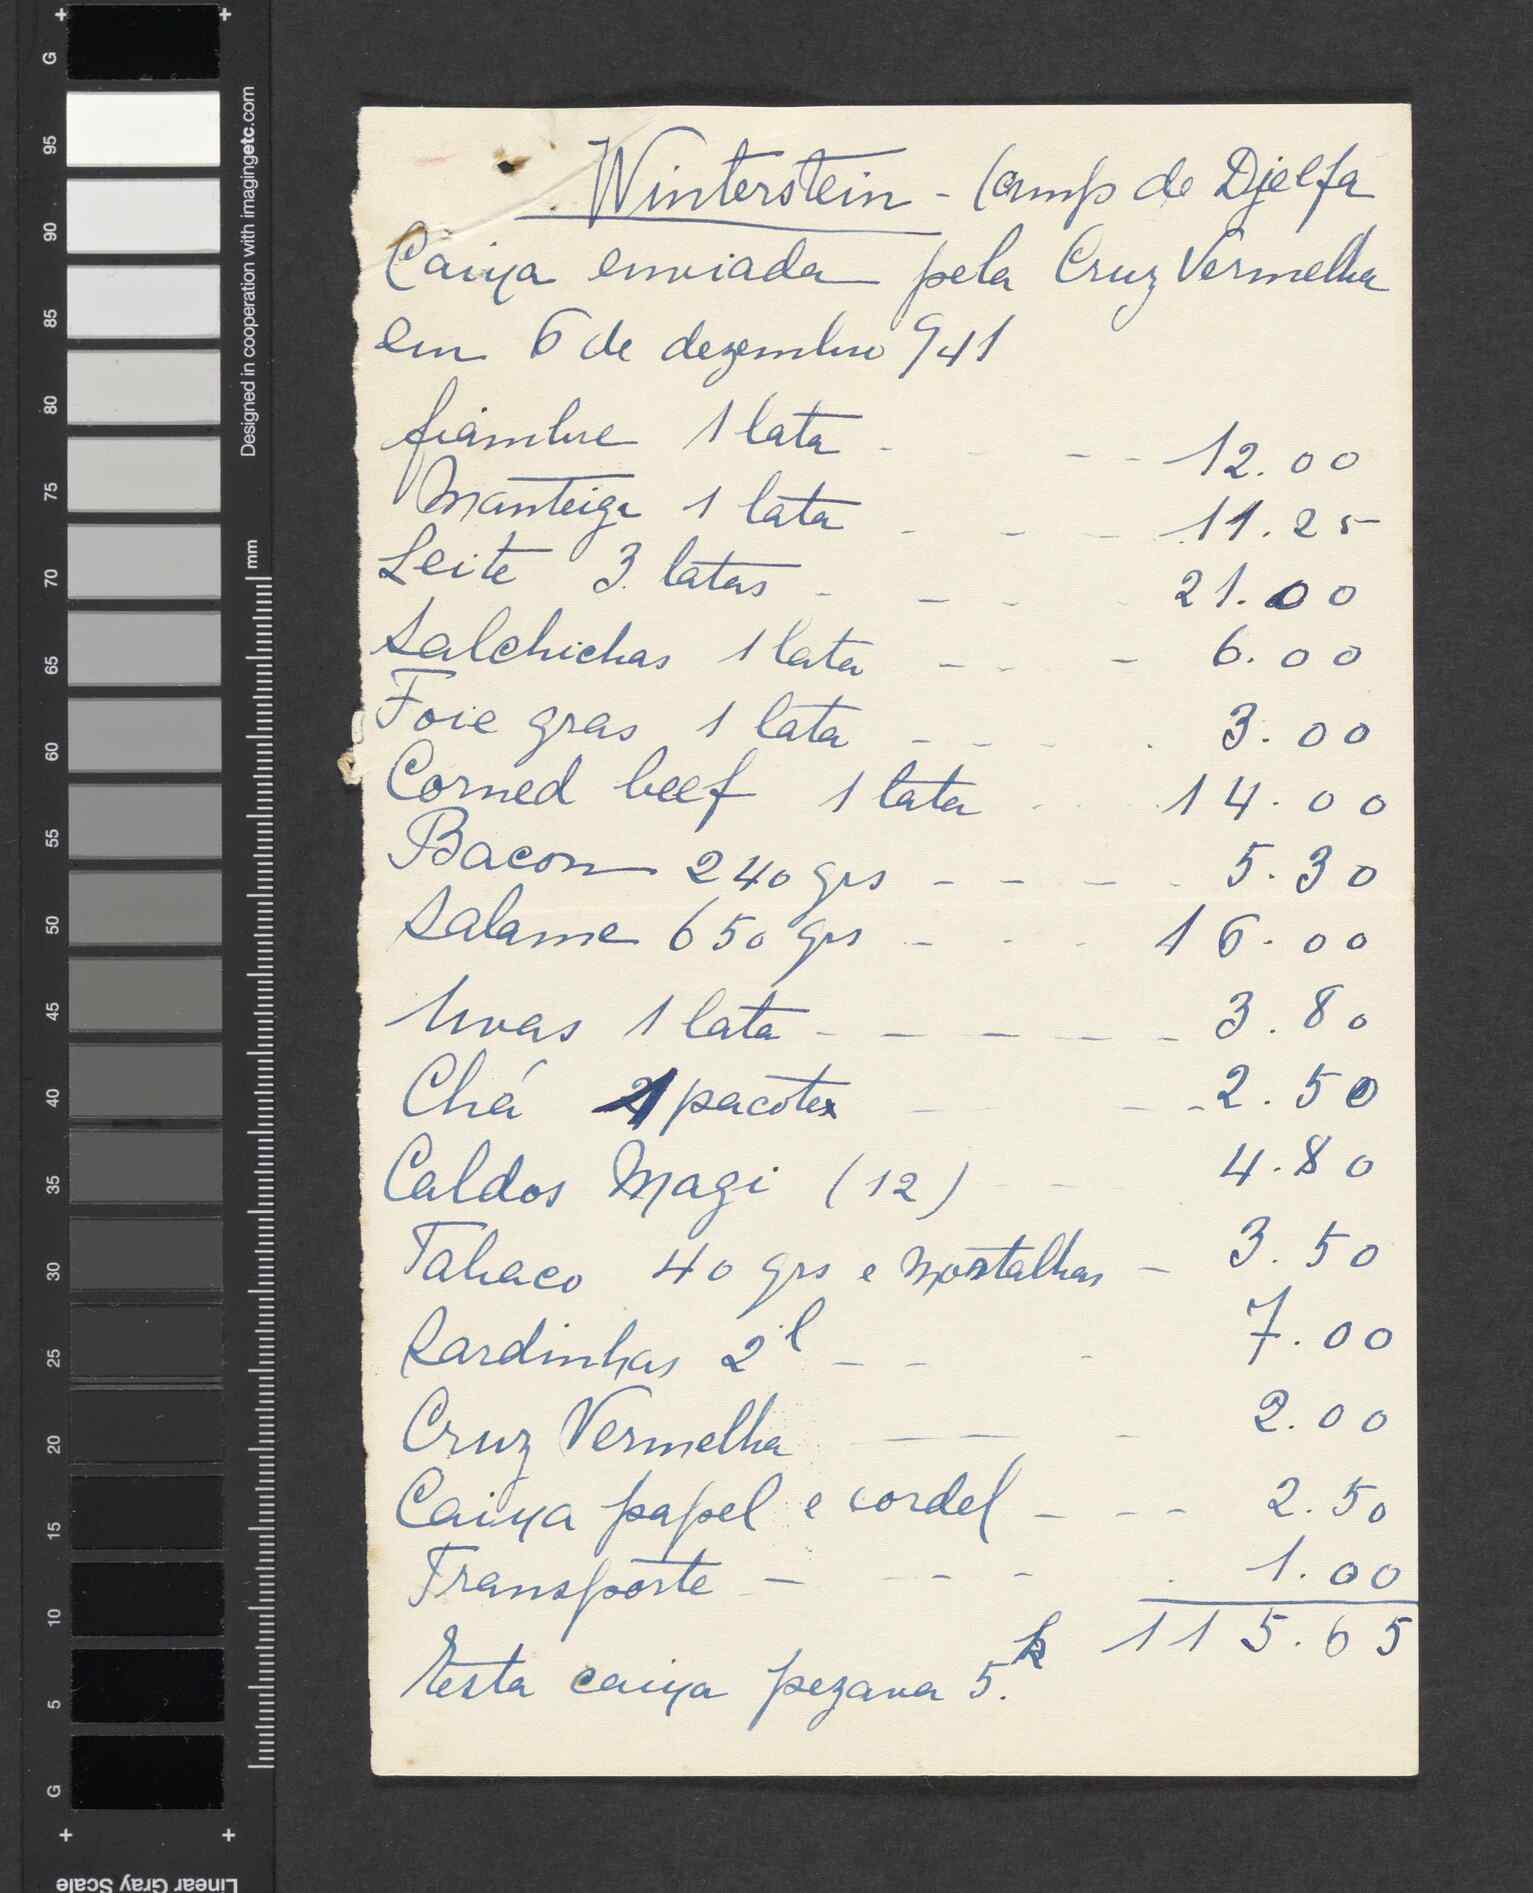 Winterstein - Camp de Djelfa
Caixa enviada pela Cruz Vermelha
em 6 de dezembro 941
fiambre 1 lata - - - - 12.00
Manteiga 1 lata - - - 11.25
Leite 3 latas - - - - 21.00
Salchichas 1 lata - - - 6.00
Foie gras 1 lata - - - . 3.00
Corned beef 1 lata - - - 14.00
Bacon 240 grs - - - - 5.30
Salame 650 grs - - - 16.00
Uvas 1 lata - - - - - 3.80
Chá 1 pacote - - - 2.50
Caldos Magi (12) - - - 4.80
Tabaco 40 grs e mortalhas - 3.50
Sardinhas 2 l - - - 7.00
Cruz Vermelha - - - 2.00
Caixa papel e cordel - - - 2.50
Transporte - - - - . 1.00
115.65
Esta caixa pezava 5.k
G
95
90
85
80
75
70
65
60
55
50
45
40
35
30
25
20
15
10
5
G
Designed in cooperation with imagingetc.com
mm
Linear Gray Scale